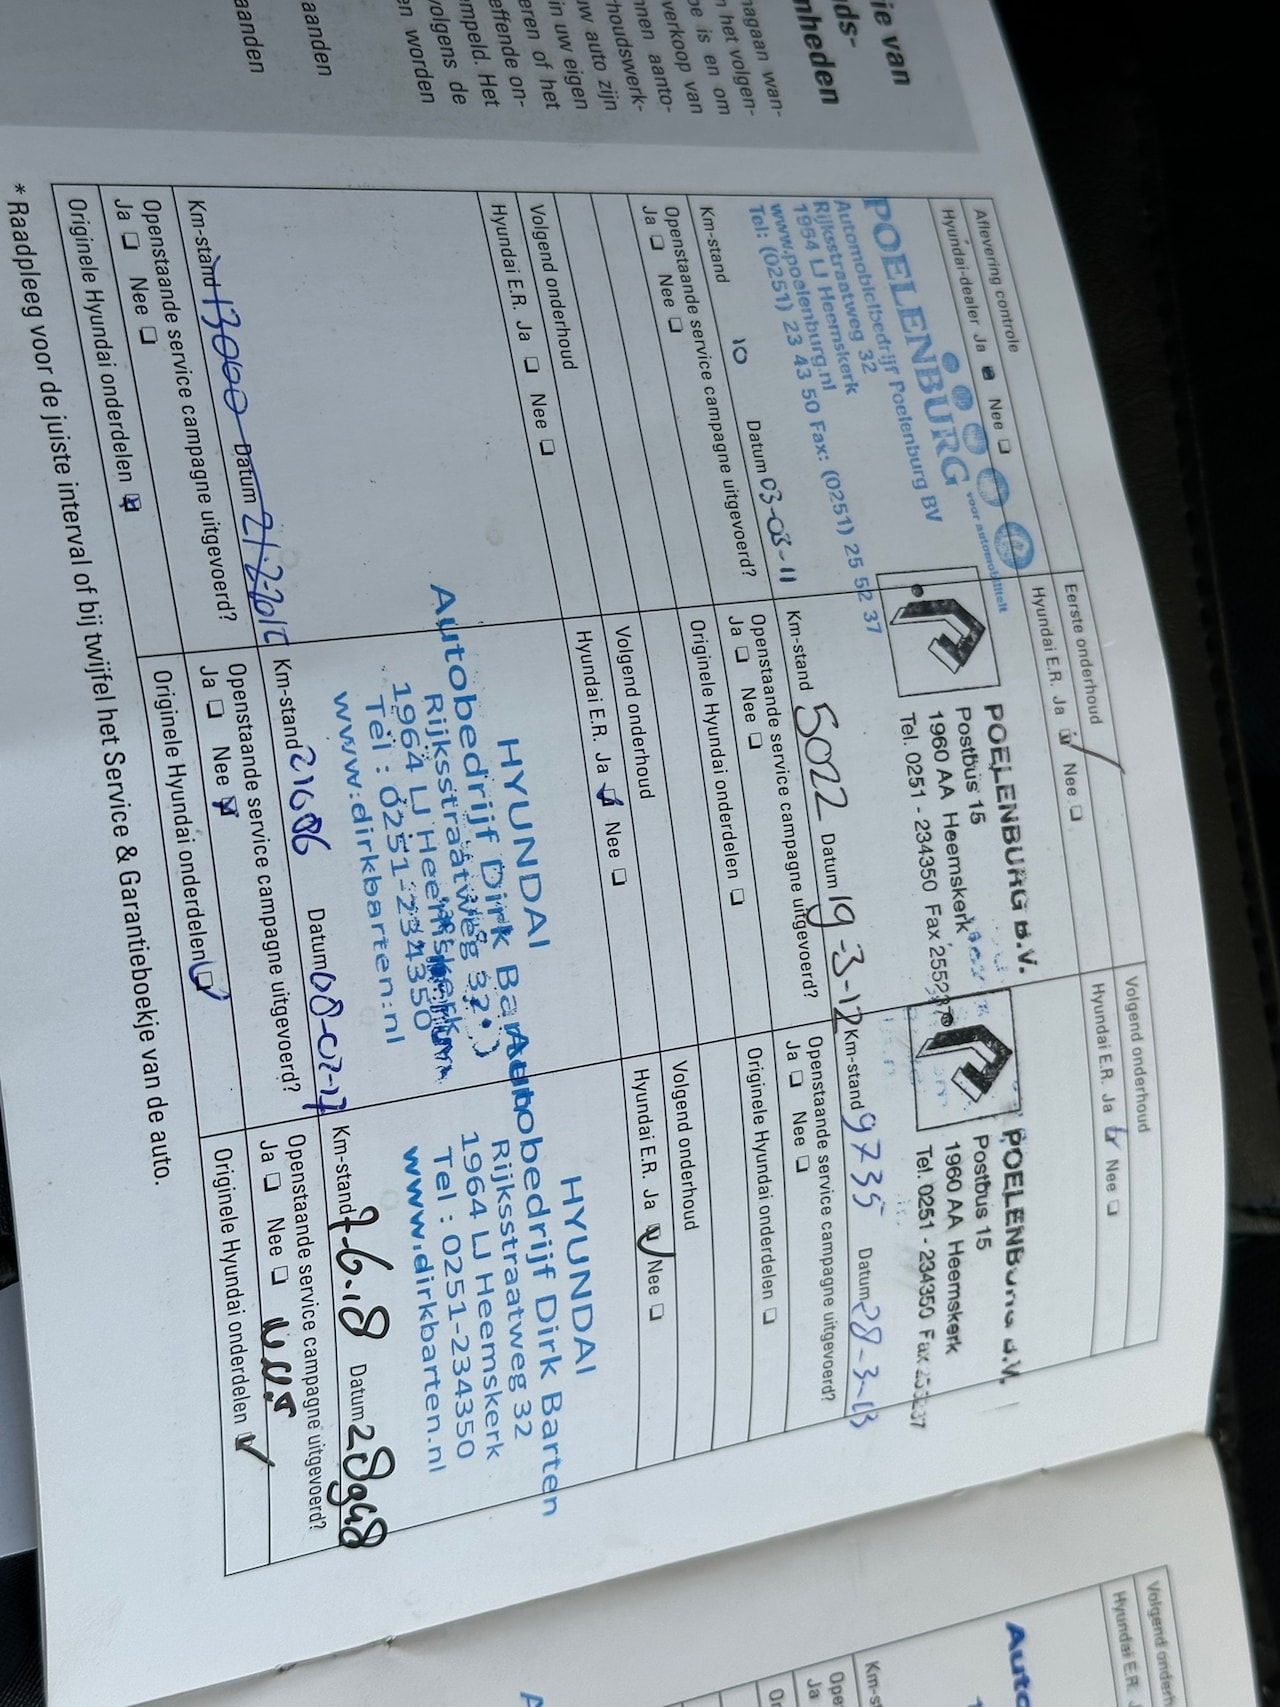 ie van
ds-
nheden
nagaan wan-
n het volgen-
be is en om
verkoop van
nnen aanto-
houdswerk-
uw auto zijn
in uw eigen
eren of het
effende on-
mpeld. Het
volgens de
en worden
aanden
aanden
Aflevering controle
Hyundai-dealer Ja Nee
POELENBURG
voor automobiliteit
Automobielbedrijf Poelenburg BV
Rijksstraatweg 32
1964 LJ Heemskerk
www.poelenburg.nl
Tel: (0251) 23 43 50 Fax: (0251) 25 52 37
Km-stand 10 Datum 03-03-11
Openstaande service campagne uitgevoerd?
Ja Nee
Eerste onderhoud
Hyundai E.R. Ja Nee
POELENBURG B.V.
Postbus 15
1960 AA Heemskerk
Tel. 0251 - 234350 Fax 255237
Km-stand 5022 Datum 19-3-12
Openstaande service campagne uitgevoerd?
Ja Nee
Originele Hyundai onderdelen
Volgend onderhoud
Hyundai E.R. Ja Nee
POELENBURG B.V.
Postbus 15
1960 AA Heemskerk
Tel. 0251 - 234350 Fax 255237
Km-stand 9735 Datum 28-3-13
Openstaande service campagne uitgevoerd?
Ja Nee
Originele Hyundai onderdelen
Volgend onderhoud
Hyundai E.R. Ja Nee
Km-stand 13000 Datum
Openstaande service campagne uitgevoerd?
Ja Nee
Originele Hyundai onderdelen
Volgend onderhoud
Hyundai E.R. Ja Nee
HYUNDAI
Autobedrijf Dirk Barten
Rijksstraatweg 32
1964 LJ Heemskerk
Tel : 0251-234350
www.dirkbarten.nl
Km-stand 21686 Datum 08-02-17
Openstaande service campagne uitgevoerd?
Ja Nee
Originele Hyundai onderdelen
Volgend onderhoud
Hyundai E.R. Ja Nee
HYUNDAI
Autobedrijf Dirk Barten
Rijksstraatweg 32
1964 LJ Heemskerk
Tel : 0251-234350
www.dirkbarten.nl
Km-stand 7-6-18 Datum
Openstaande service campagne uitgevoerd?
Ja Nee
Originele Hyundai onderdelen
* Raadpleeg voor de juiste interval of bij twijfel het Service & Garantieboekje van de auto.
Volgend onderh
Hyundai E.R.
Auto
Km-st
Ope
Ja
Or
A